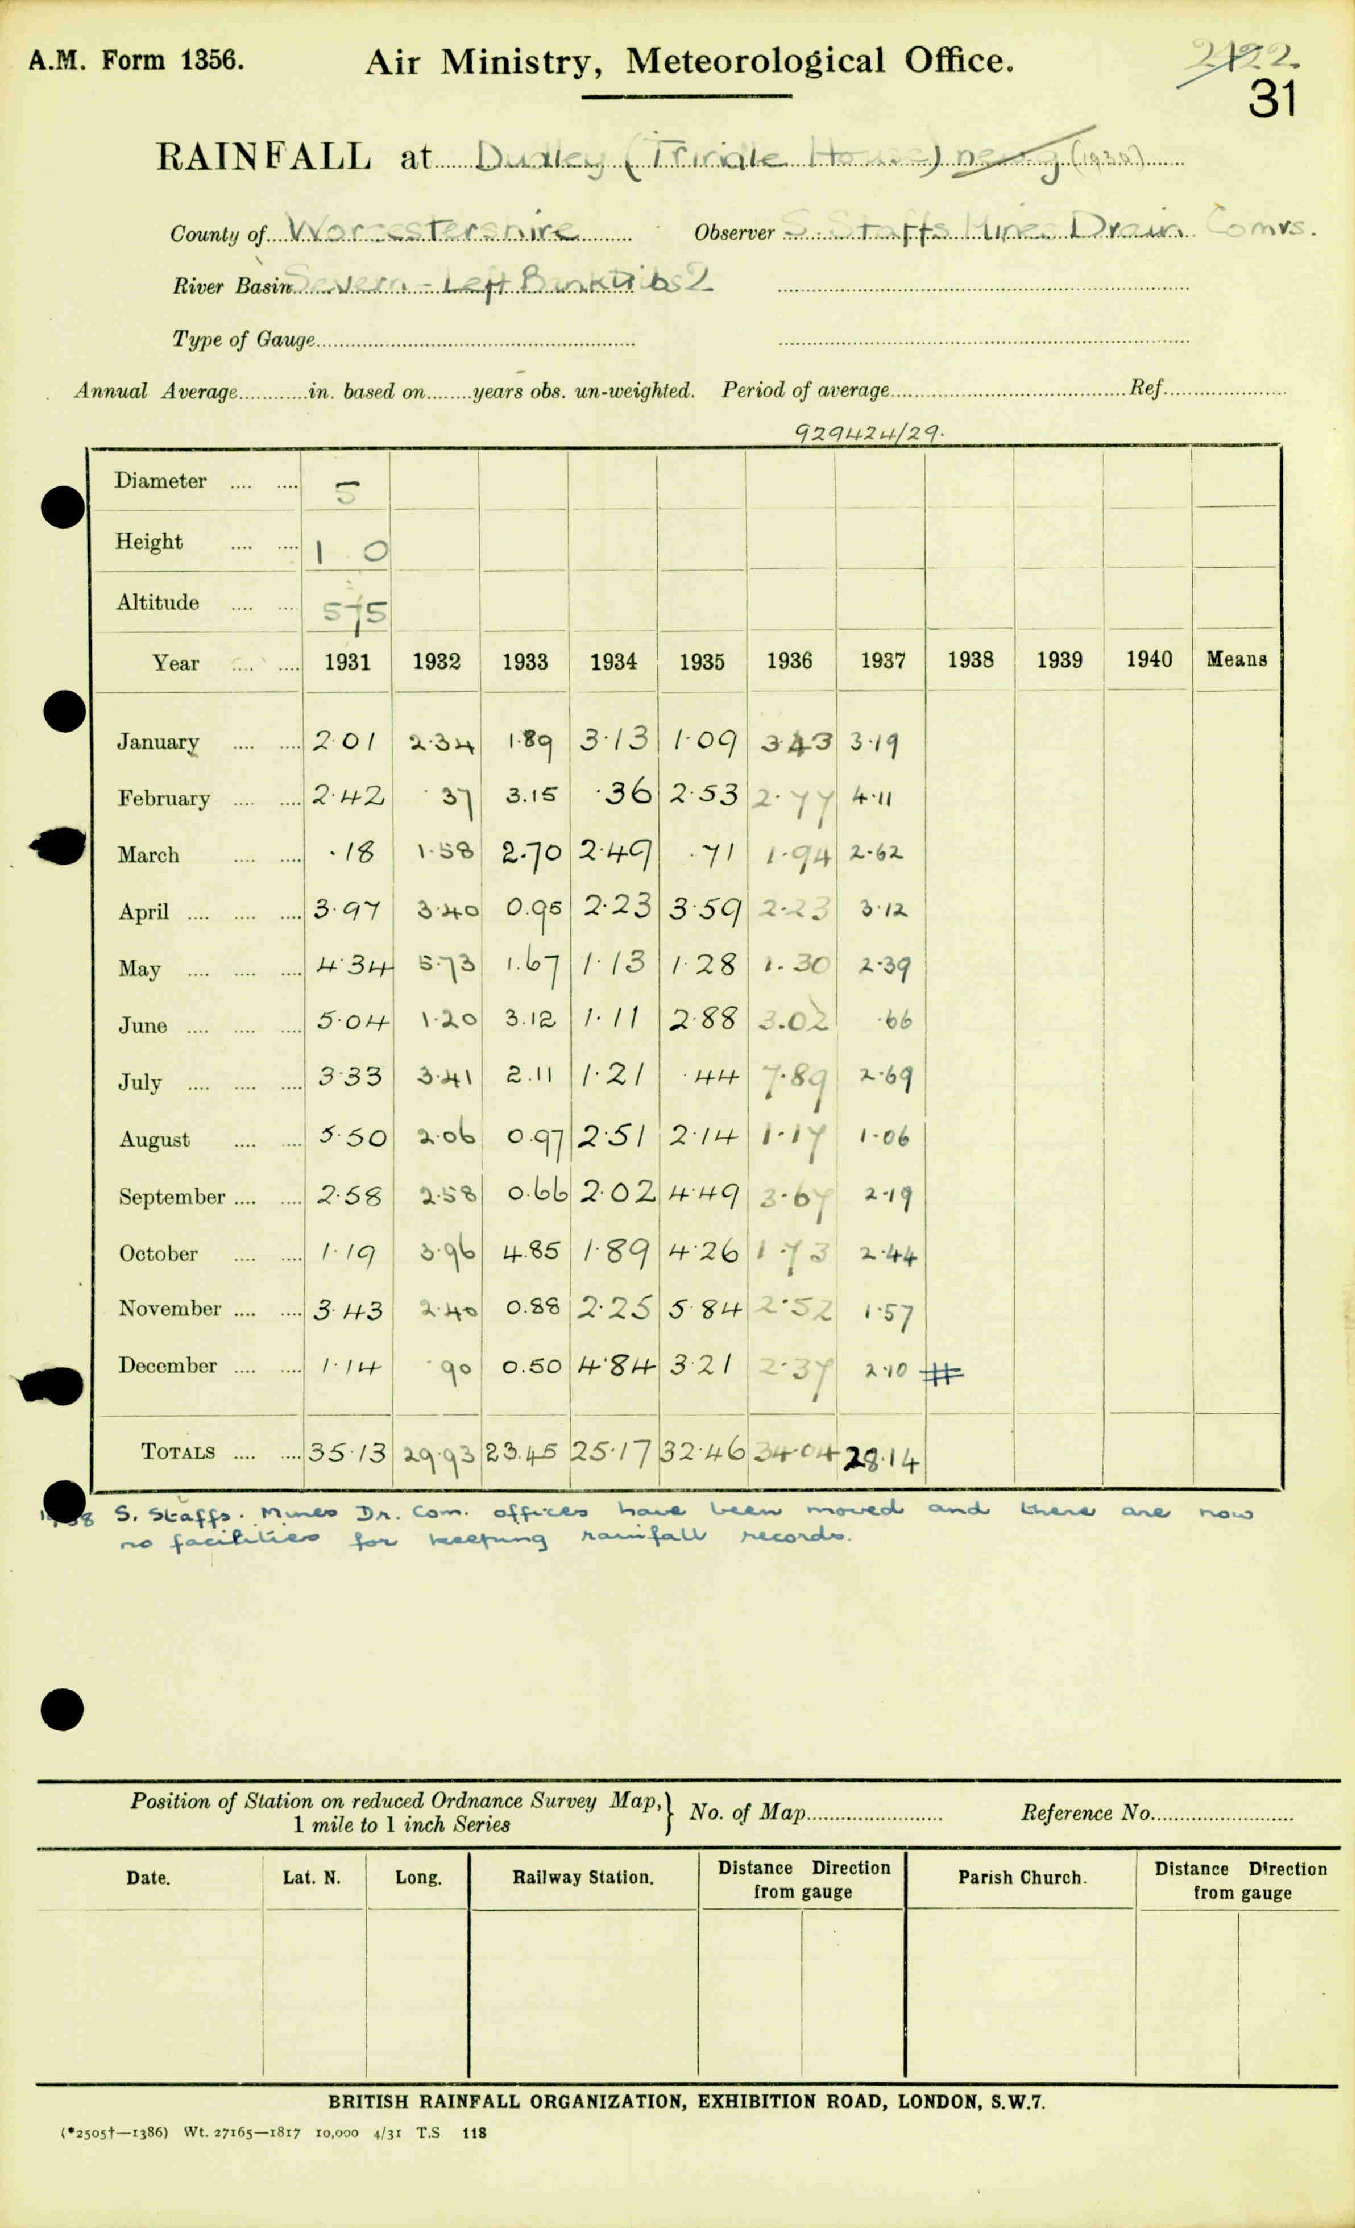 A.M. Form 1356. Air Ministry, Meteorological Office. 2122
31
RAINFALL at Dudley (Trindle House) (1930)
County of Worcestershire Observer S. Staffs Mines Drain Comrs.
River Basin Severn - Left Bank tribs 2
Type of Gauge
Annual Average in. based on years obs. un-weighted. Period of average Ref.
929424/29.
Diameter 5
Height 1 0
Altitude 575
Year 1931 1932 1933 1934 1935 1936 1937 1938 1939 1940 Means
January 2.01 2.34 1.89 3.13 1.09 3.43 3.19
February 2.42 .37 3.15 .36 2.53 2.77 4.11
March .18 1.58 2.70 2.49 .71 1.94 2.62
April 3.97 3.40 0.95 2.23 3.59 2.23 3.12
May 4.34 5.73 1.67 1.13 1.28 1.30 2.39
June 5.04 1.20 3.12 1.11 2.88 3.02 .66
July 3.33 3.41 2.11 1.21 .44 7.89 2.69
August 5.50 2.06 0.97 2.51 2.14 1.17 1.06
September 2.58 2.58 0.66 2.02 4.49 3.67 2.19
October 1.19 3.96 4.85 1.89 4.26 1.73 2.44
November 3.43 2.40 0.88 2.25 5.84 2.52 1.57
December 1.14 .90 0.50 4.84 3.21 2.37 2.10 #
TOTALS 35.13 29.93 23.45 25.17 32.46 34.04 28.14
1938 S. Staffs. Mines Dr. Com. offices have been moved and there are now
no facilities for keeping rainfall records.
Position of Station on reduced Ordnance Survey Map, } No. of Map Reference No.
1 mile to 1 inch Series
Date. Lat. N. Long. Railway Station. Distance Direction from gauge Parish Church. Distance Direction from gauge
BRITISH RAINFALL ORGANIZATION, EXHIBITION ROAD, LONDON, S.W.7.
(*2505†—1386) Wt. 27165—1817 10,000 4/31 T.S. 118